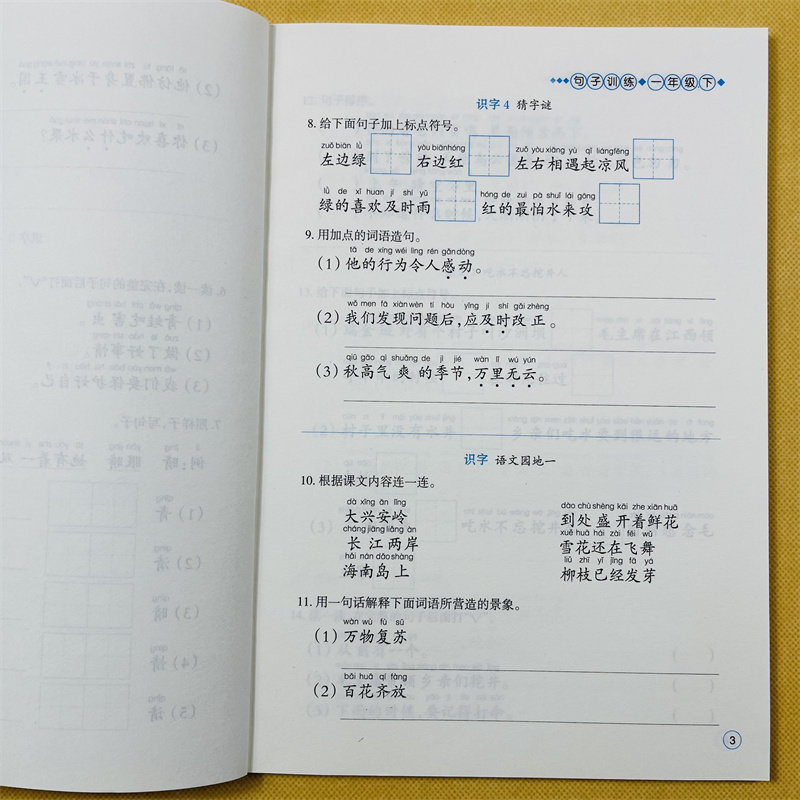 句子训练 一年级 下
识字4 猜字谜
8. 给下面句子加上标点符号。
zuǒ biān lǜ yòu biānhóng zuǒ yòu xiāng yù qǐ liángfēng
左边绿 右边红 左右相遇起凉风
lǜ de xǐ huan jí shí yǔ hóng de zuì pà shuǐ lái gōng
绿的喜欢及时雨 红的最怕水来攻
9. 用加点的词语造句。
tā de xíng wéi lìng rén gǎndòng
(1) 他的行为令人感动。
wǒ men fā xiànwèn tí hòu yīng jí shí gǎi zhèng
(2) 我们发现问题后,应及时改正。
qiū gāo qì shuǎng de jì jié wàn lǐ wú yún
(3) 秋高气爽的季节,万里无云。
识字 语文园地一
10. 根据课文内容连一连。
dà xīng ān lǐng dào chù shèng kāi zhe xiān huā
大兴安岭 到处盛开着鲜花
cháng jiāng liǎng àn xuě huā hái zài fēi wǔ
长江两岸 雪花还在飞舞
hǎi nán dǎo shàng liǔ zhī yǐ jīng fā yá
海南岛上 柳枝已经发芽
11. 用一句话解释下面词语所营造的景象。
wàn wù fù sū
(1) 万物复苏
bǎi huā qí fàng
(2) 百花齐放
3